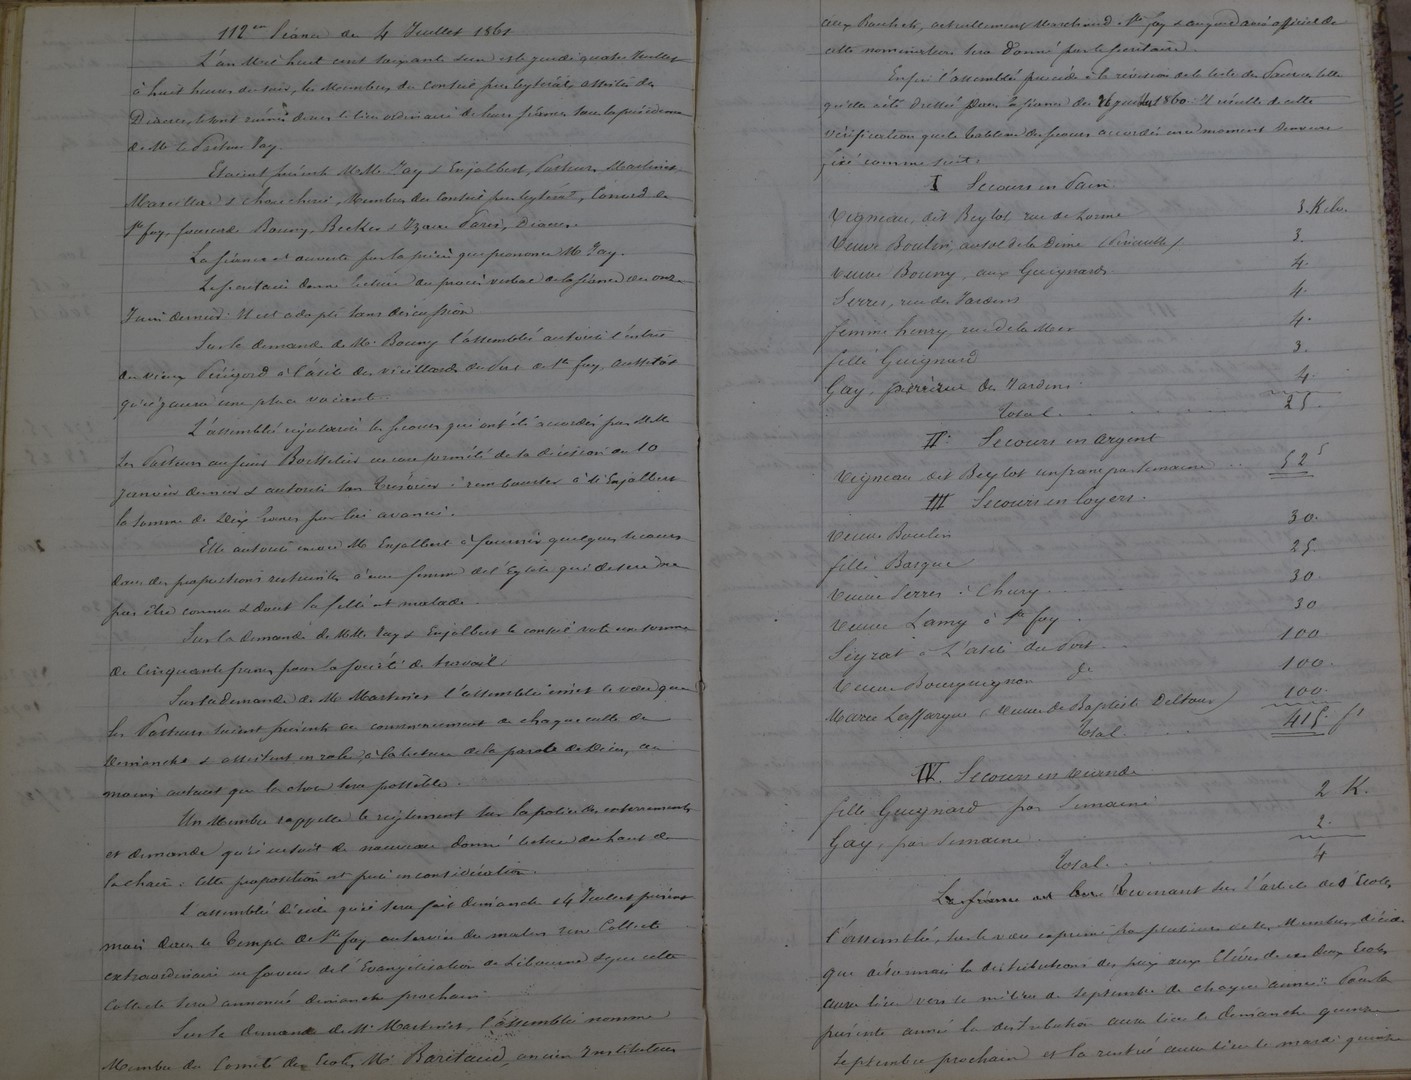 112em Séance du 4 Juillet 1861
L'an Mil huit cent soixante et un et le jeudi quatre Juillet
à huit heures du soir, les Membres du Conseil presbytéral, assistés des
Diacres, se sont réunis dans le lieu ordinaire de leurs séances sous la présidence
de Mr le Pasteur Pay.
Etaient présents MM. Pay & Enjalbert, Pasteurs, Martinet
Membres du Conseil presbytéral, de
Ste foy, Bouny, Becker & Diacres.
La séance est ouverte par la prière que prononce Mr Pay.
Le secrétaire donne lecture du procès verbal de la séance du onze
Juin dernier. Il est adopté sans discussion.
Sur la demande de Mr Bouny l'assemblée autorise l'entrée
du vieux Périgord à l'asile des vieillards du Port de Ste foy, aussitôt
qu'il y aura une place vacante.
L'assemblée régularise les secours qui ont été accordés par MM.
les Pasteurs au sieur en conformité de la décision du 10
janvier dernier & autorise son Trésorier à rembourser à Mr Enjalbert
la somme de Dix francs par lui avancée.
Elle autorise encore Mr Enjalbert à fournir quelques secours
dans des proportions restreintes à une femme de l'Eglise qui désire ne
pas être connue & dont la fille est malade.
Sur la demande de MM. Pay & Enjalbert le conseil vote une somme
de Cinquante francs pour la société de travail.
Sur la demande de Mr Martinet l'assemblée émet le vœu que
les Pasteurs soient présents au commencement de chaque culte du
Dimanche & assistent en robe, à la lecture de la parole de Dieu, au
moins autant que la chose sera possible.
Un Membre rappelle le règlement sur la police des enterrements
et demande qu'il en soit de nouveau donné lecture du haut de
la chaire. Cette proposition est prise en considération.
L'assemblée décide qu'il sera fait dimanche 14 Juillet présent
mois dans le Temple de Ste foy au service du matin une Collecte
extraordinaire en faveur de l'Evangélisation de Libourne & que cette
collecte sera annoncée dimanche prochain.
Sur la demande de Mr Martinet, l'assemblée nomme
Membre du Comité des Ecoles, Mr Baritaud, ancien Instituteur
aux Bouhets, actuellement Marchand à Ste foy & auquel avis officiel de
cette nomination sera donné par le secrétaire.
Enfin l'assemblée procède à la révision de la liste des Pauvres telle
qu'elle a été dressée dans la séance du 26 1860. Il résulte de cette
vérification que le tableau des secours accordés en ce moment demeure
fixé comme suit:
I Secours en Pain
Vigneau, dit Beylot rue de Lorme 3 Kilo.
Veuve Boulin, au sol de la Dime (Pineuilh) 3.
Veuve Bouny, aux Guignards 4.
Serres, rue des Jardins 4.
femme henry, rue de la Mer 4.
fille Guignard 3.
Gay, père, rue des Jardins 4.
Total 25.
II Secours en argent
Vigneau dit Beylot un franc par semaine 52 f
III Secours en loyers.
Veuve Boulin 30.
fille Basque 25.
Veuve Serres à Chury 30.
Veuve Lamy à Ste foy 30
Seyrat à L'asile du Port 100.
Veuve Bourguignon do 100.
Marie Laffargue (Veuve de Baptiste Deltour) 100.
Total 415. f
IV. Secours en viande
fille Guignard par Semaine 2 K.
Gay, par Semaine 2.
Total 4
La séance est Revenant sur l'article des Ecoles
l'assemblée, sur le vœu exprimé par plusieurs de ses Membres, décide
que désormais la distribution des prix aux Elèves de ses deux Ecoles
aura lieu vers le milieu de septembre de chaque année. Pour la
présente année la distribution aura lieu le dimanche quinze
Septembre prochain et la rentrée aura lieu le mardi quinze